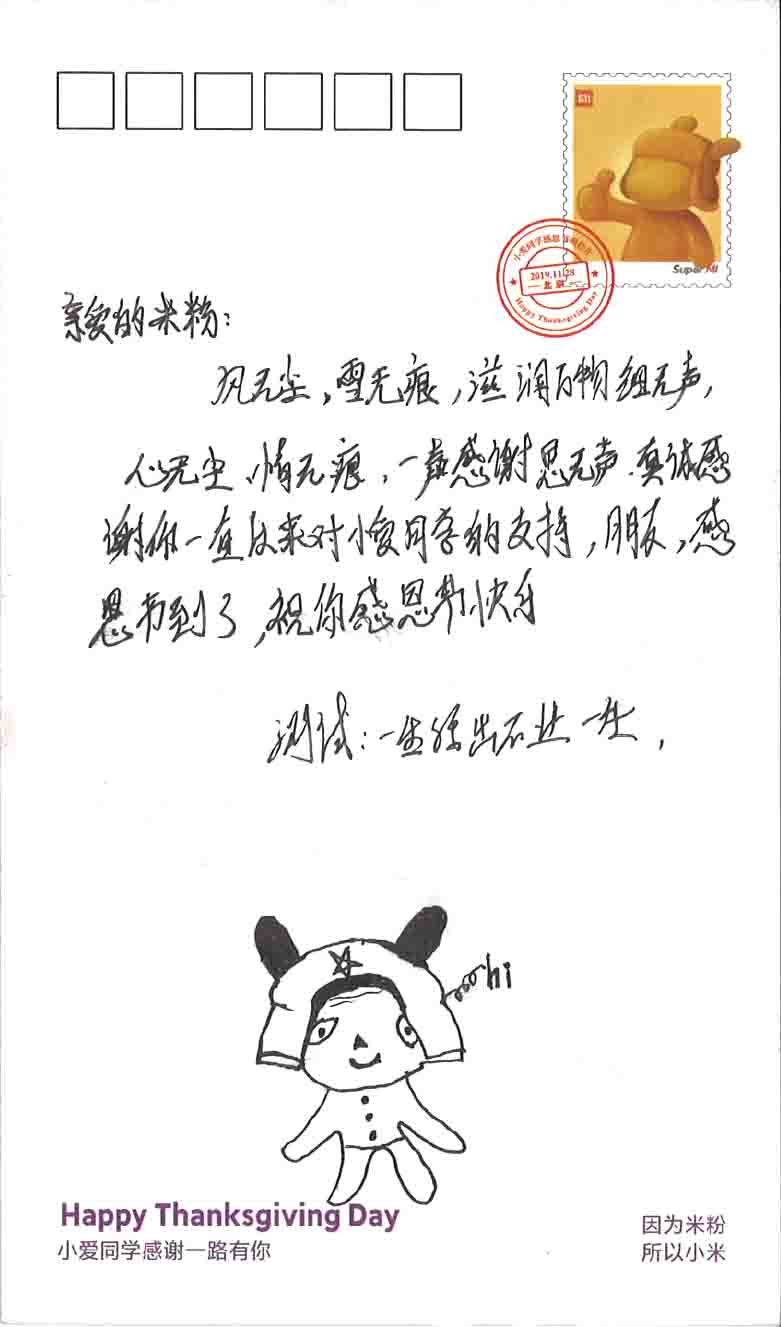 小爱同学感恩节明信片
2019.11.28
北京
Happy Thanksgiving Day
Super MI
亲爱的米粉：
风无尘，雪无痕，滋润万物细无声，
心无尘，情无痕，一声感谢思无声．真诚感
谢你一直以来对小爱同学的支持，朋友，感
恩节到了，祝你感恩节快乐
测试：
hi
Happy Thanksgiving Day
小爱同学感谢一路有你
因为米粉
所以小米